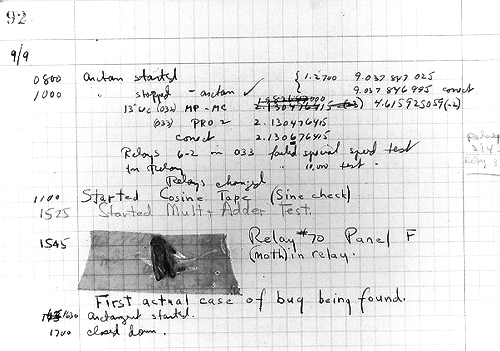 92
9/9
0800 Antan started
1000 " stopped - antan ✓ { 1.2700 9.037 847 025
9.037 846 995 correct
13"uc (032) MP - MC 4.615925059(-2)
(033) PRO 2 2.130476415
correct 2.130676415
Relays 6-2 in 033 failed special speed test
in Relay " 10.000 test.
Relays changed
1100 Started Cosine Tape (Sine check)
1525 Started Mult + Adder Test.
1545 Relay #70 Panel F
(moth) in relay.
First actual case of bug being found.
1630 antangent started.
1700 closed down.